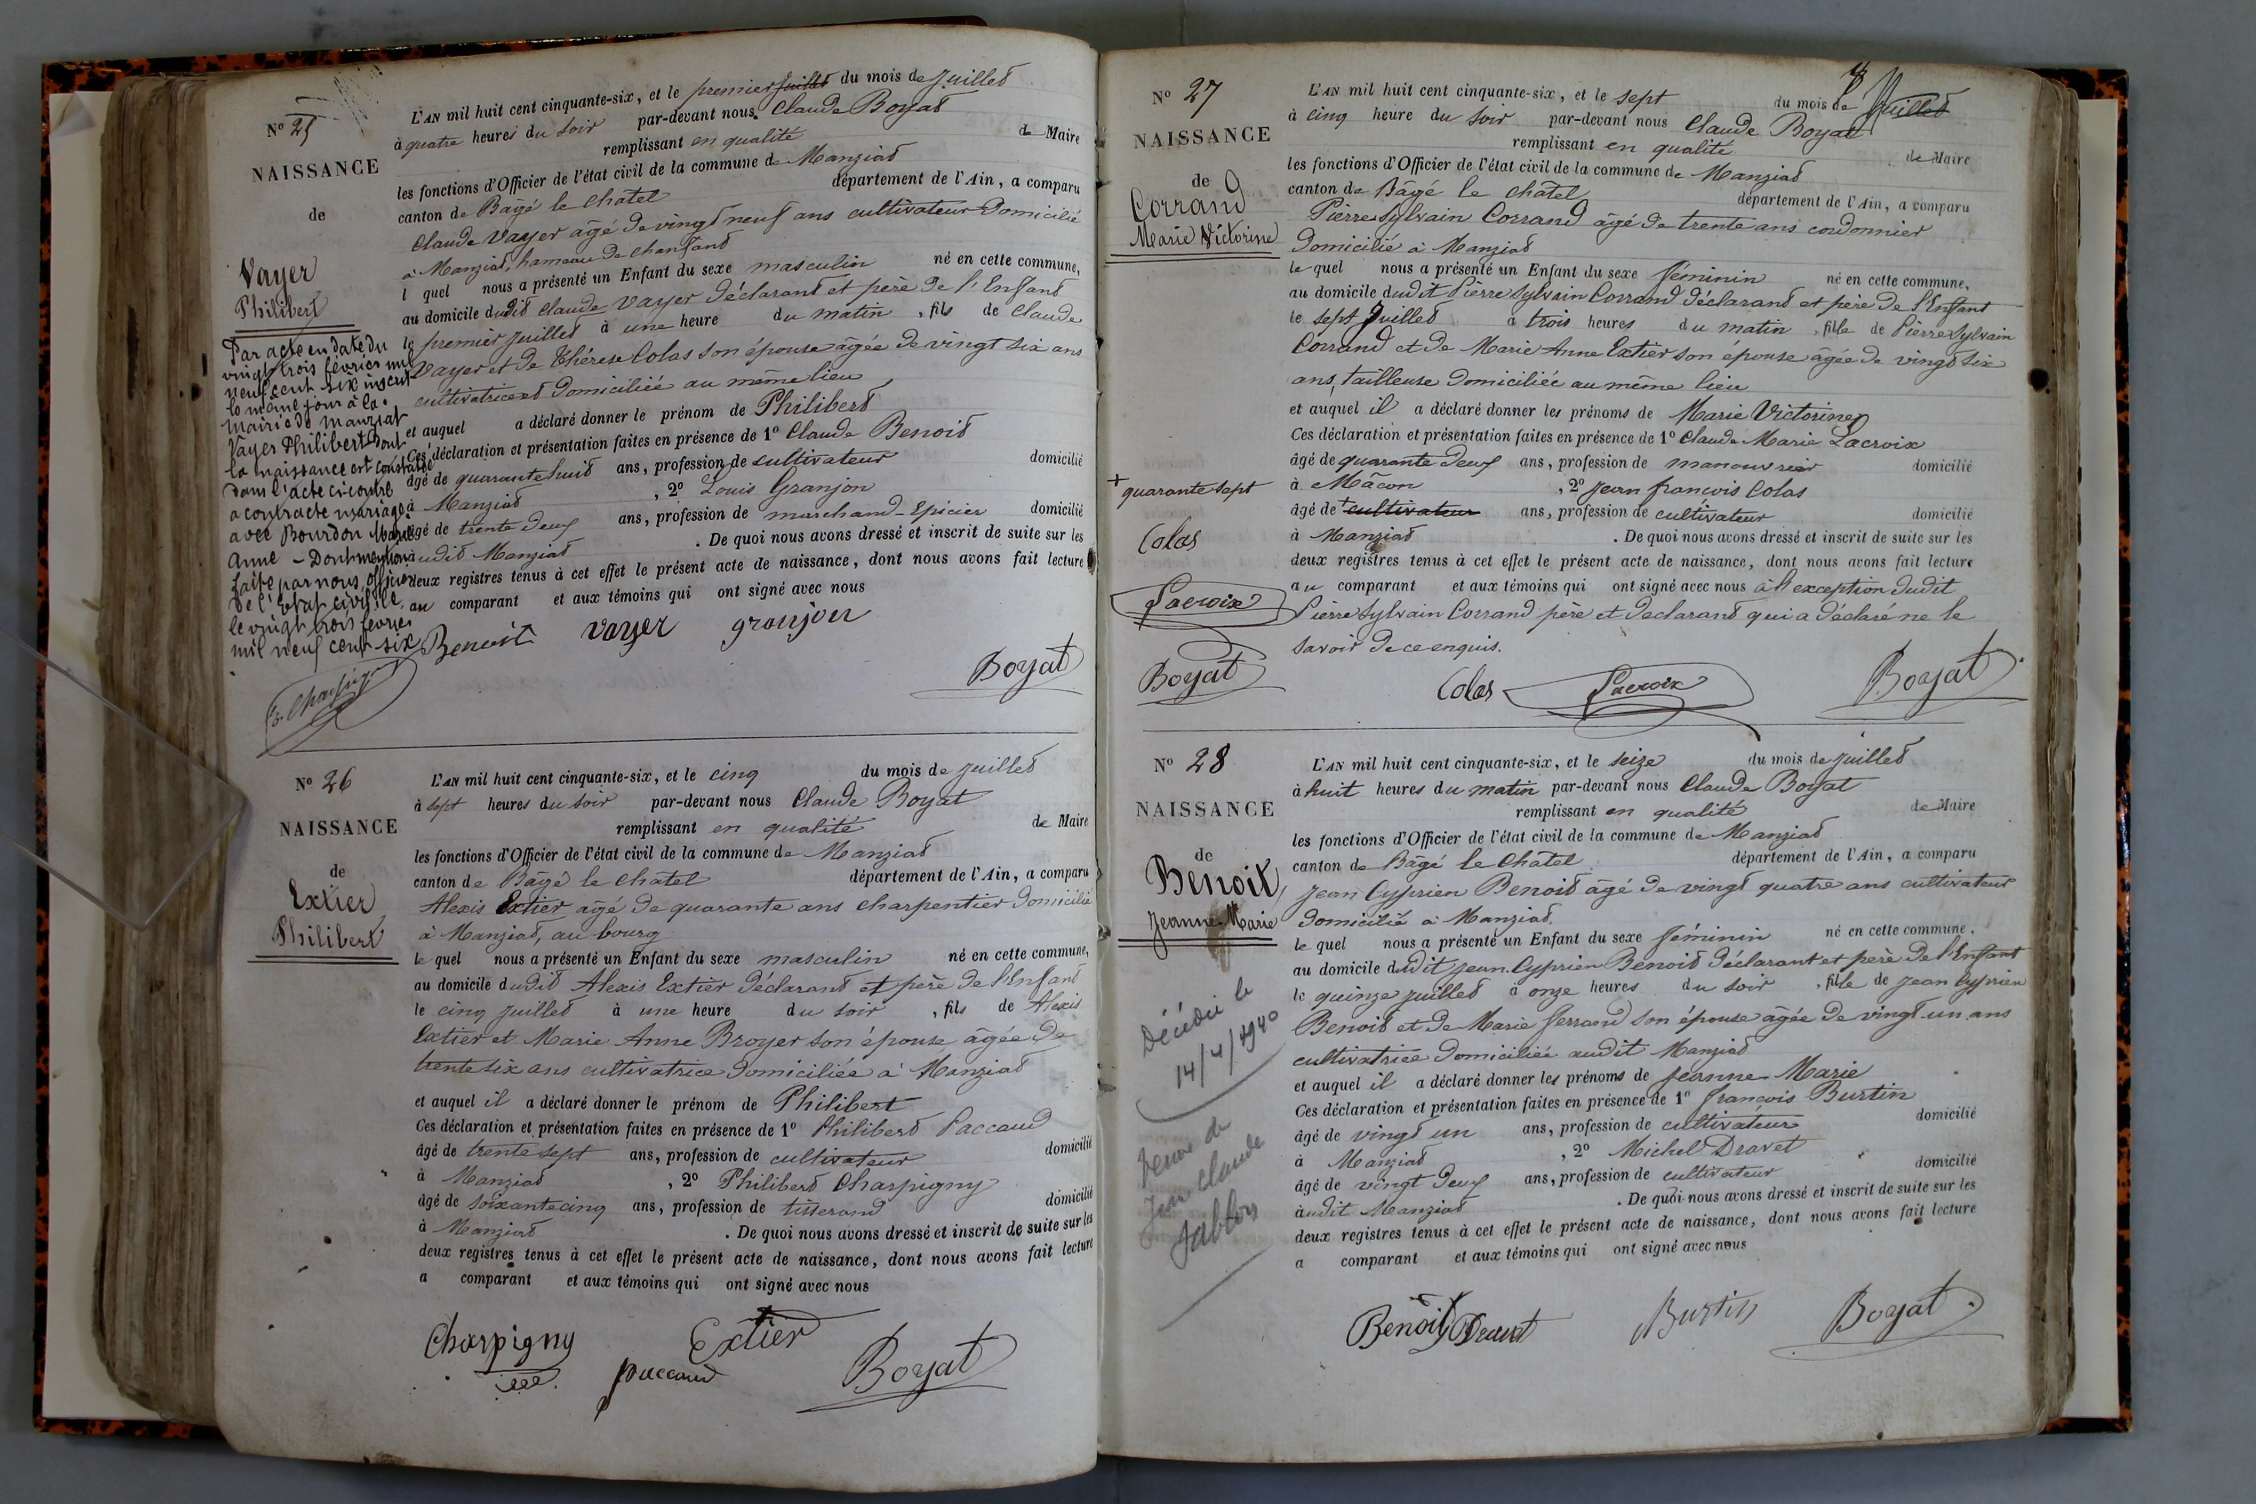 N° 25
NAISSANCE
de
Vayer
Philibert
Par acte en date du
vingt trois février mil
neuf cent six inscrit
le même jour à la
mairie de Manziat
Vayer Philibert dont
la naissance est constatée
dans l'acte ci-contre
a contracté mariage
avec Bourdon Marie
Anne - Dont mention
faite par nous, officier
de l'état civil le
le vingt trois février
mil neuf cent six
L'AN mil huit cent cinquante-six, et le premier juillet du mois de Juillet
à quatre heures du soir par-devant nous Claude Boyat
remplissant en qualité de Maire
les fonctions d'Officier de l'état civil de la commune de Manziat
canton de Bâgé le Châtel département de l'Ain, a comparu
Claude Vayer âgé de vingt neuf ans cultivateur domicilié
à Manziat, hameau de Chanfand
l quel nous a présenté un Enfant du sexe masculin né en cette commune,
au domicile dudit Claude Vayer déclarant et père de l'Enfant
le premier juillet à une heure du matin , fils de Claude
Vayer et de Thérèse Colas son épouse âgée de vingt six ans
cultivatrice domiciliée au même lieu
et auquel a déclaré donner le prénom de Philibert
Ces déclaration et présentation faites en présence de 1° Claude Benoit
âgé de quarante huit ans, profession de cultivateur domicilié
à Manziat , 2° Louis Granjon
âgé de trente deux ans, profession de marchand-Epicier domicilié
à udit Manziat . De quoi nous avons dressé et inscrit de suite sur les
deux registres tenus à cet effet le présent acte de naissance, dont nous avons fait lecture
au comparant et aux témoins qui ont signé avec nous
Benoit Vayer granjon
Boyat
N° 26
NAISSANCE
de
Extier
Philibert
L'AN mil huit cent cinquante-six, et le cinq du mois de juillet
à sept heures du soir par-devant nous Claude Boyat
remplissant en qualité de Maire
les fonctions d'Officier de l'état civil de la commune de Manziat
canton de Bâgé le Châtel département de l'Ain, a comparu
Alexis Extier âgé de quarante ans charpentier domicilié
à Manziat, au bourg
le quel nous a présenté un Enfant du sexe masculin né en cette commune,
au domicile dudit Alexis Extier déclarant et père de l'Enfant
le cinq juillet à une heure du soir , fils de Alexis
Extier et Marie Anne Broyer son épouse âgée de
trente six ans cultivatrice domiciliée à Manziat
et auquel il a déclaré donner le prénom de Philibert
Ces déclaration et présentation faites en présence de 1° Philibert Paccaud
âgé de trente sept ans, profession de cultivateur domicilié
à Manziat , 2° Philibert Charpigny
âgé de soixante cinq ans, profession de tisserand domicilié
à Manziat . De quoi nous avons dressé et inscrit de suite sur les
deux registres tenus à cet effet le présent acte de naissance, dont nous avons fait lecture
a comparant et aux témoins qui ont signé avec nous
Charpigny Extier
paccaud Boyat
N° 27
NAISSANCE
de
Corrand
Marie Victorine
+
quarante sept
Colas
Lacroix
Boyat
L'AN mil huit cent cinquante-six, et le sept du mois de Juillet
à cinq heure du soir par-devant nous Claude Boyat
remplissant en qualité de Maire
les fonctions d'Officier de l'état civil de la commune de Manziat
canton de Bâgé le Châtel département de l'Ain, a comparu
Pierre Sylvain Corrand âgé de trente ans cordonnier
domicilié à Manziat
le quel nous a présenté un Enfant du sexe féminin né en cette commune,
au domicile dudit Pierre Sylvain Corrand déclarant et père de l'Enfant
le sept Juillet à trois heures du matin , fille de Pierre Sylvain
Corrand et de Marie Anne Extier son épouse âgée de vingt six
ans, tailleuse domiciliée au même lieu
et auquel il a déclaré donner les prénoms de Marie Victorine
Ces déclaration et présentation faites en présence de 1° Claude Marie Lacroix
âgé de quarante deux ans, profession de manouvrier domicilié
à Mâcon , 2° Jean françois Colas
âgé de + cultivateur ans, profession de cultivateur domicilié
à Manziat . De quoi nous avons dressé et inscrit de suite sur les
deux registres tenus à cet effet le présent acte de naissance, dont nous avons fait lecture
au comparant et aux témoins qui ont signé avec nous à l'exception dudit
Pierre Sylvain Corrand père et declarant qui a déclaré ne le
savoir de ce enquis.
Colas Lacroix Boyat
N° 28
NAISSANCE
de
Benoit,
Jeanne-Marie
Décédée le
14/4/1940
Veuve de
Jean Claude
L'AN mil huit cent cinquante-six, et le seize du mois de juillet
à huit heures du matin par-devant nous Claude Boyat
remplissant en qualité de Maire
les fonctions d'Officier de l'état civil de la commune de Manziat
canton de Bâgé le Châtel département de l'Ain, a comparu
Jean Cyprien Benoit âgé de vingt quatre ans cultivateur
domicilié à Manziat
le quel nous a présenté un Enfant du sexe féminin né en cette commune,
au domicile dudit Jean Cyprien Benoit déclarant et père de l'Enfant
le quinze juillet à onze heures du soir , fille de Jean Cyprien
Benoit et de Marie Ferrand son épouse âgée de vingt-un ans
cultivatrice domiciliée audit Manziat
et auquel il a déclaré donner les prénoms de Jeanne-Marie
Ces déclaration et présentation faites en présence de 1° françois Burtin
âgé de vingt un ans, profession de cultivateur domicilié
à Manziat , 2° Michel Dravet
âgé de vingt deux ans, profession de cultivateur domicilié
à udit Manziat . De quoi nous avons dressé et inscrit de suite sur les
deux registres tenus à cet effet le présent acte de naissance, dont nous avons fait lecture
a comparant et aux témoins qui ont signé avec nous
Benoit Dravet Burtin Boyat